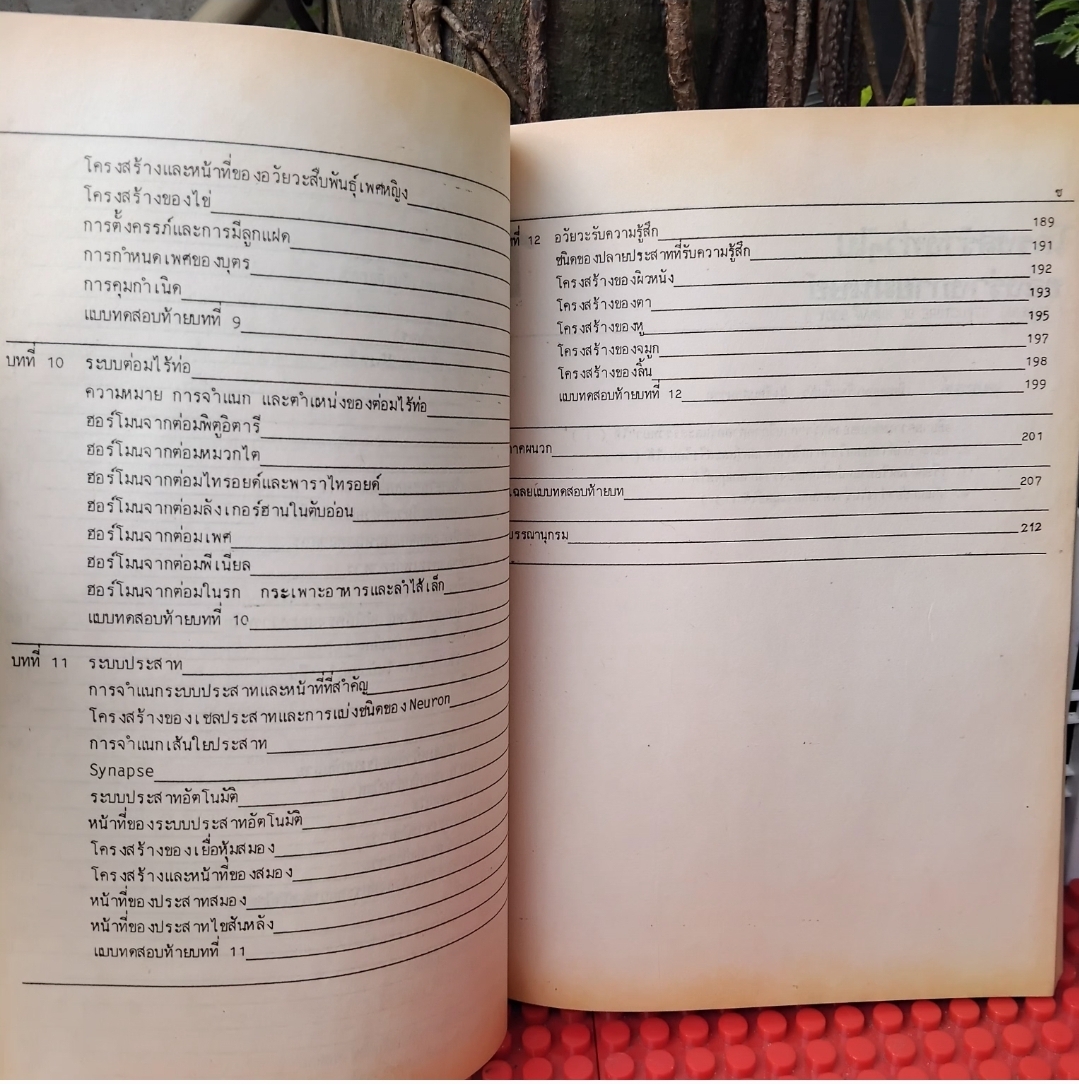 โครงสร้างและหน้าที่ของอวัยวะสืบพันธุ์เพศหญิง
โครงสร้างของไข่
การตั้งครรภ์และการมีลูกแฝด
การกำหนดเพศของบุตร
การคุมกำเนิด
แบบทดสอบท้ายบทที่ 9
บทที่ 10 ระบบต่อมไร้ท่อ
ความหมาย การจำแนก และตำแหน่งของต่อมไร้ท่อ
ฮอร์โมนจากต่อมพิตูอิตารี
ฮอร์โมนจากต่อมหมวกไต
ฮอร์โมนจากต่อมไทรอยด์และพาราไทรอยด์
ฮอร์โมนจากต่อมลังเกอร์ฮานในตับอ่อน
ฮอร์โมนจากต่อมเพศ
ฮอร์โมนจากต่อมพีเนียล
ฮอร์โมนจากต่อมในรก กระเพาะอาหารและลำไส้เล็ก
แบบทดสอบท้ายบทที่ 10
บทที่ 11 ระบบประสาท
การจำแนกระบบประสาทและหน้าที่ที่สำคัญ
โครงสร้างของเซลประสาทและการแบ่งชนิดของ Neuron
การจำแนกเส้นใยประสาท
Synapse
ระบบประสาทอัตโนมัติ
หน้าที่ของระบบประสาทอัตโนมัติ
โครงสร้างของเยื่อหุ้มสมอง
โครงสร้างและหน้าที่ของสมอง
หน้าที่ของประสาทสมอง
หน้าที่ของประสาทไขสันหลัง
แบบทดสอบท้ายบทที่ 11
ช
ที่ 12 อวัยวะรับความรู้สึก 189
ชนิดของปลายประสาทที่รับความรู้สึก 191
โครงสร้างของผิวหนัง 192
โครงสร้างของตา 193
โครงสร้างของหู 195
โครงสร้างของจมูก 197
โครงสร้างของลิ้น 198
แบบทดสอบท้ายบทที่ 12 199
ภาคผนวก 201
เฉลยแบบทดสอบท้ายบท 207
บรรณานุกรม 212